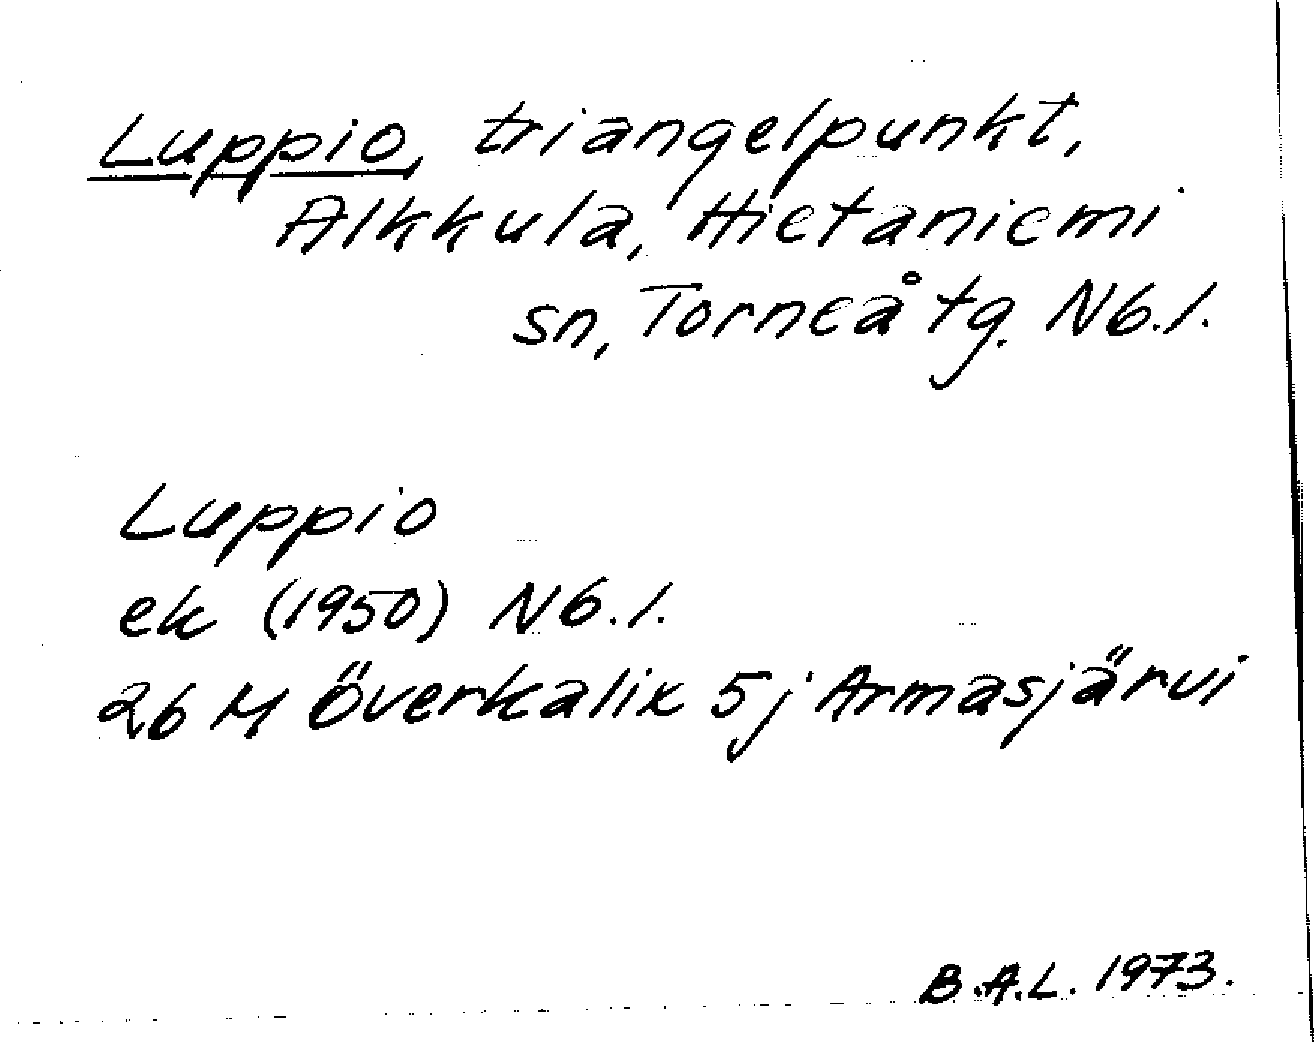 Luppio, triangelpunkt,
Alkkula, Hietaniemi
sn, Torneå tg. Nb.l.
Luppio
ek (1950) Nb.l.
26 M Överkalix 5j Armasjärvi
B.A.L. 1973.